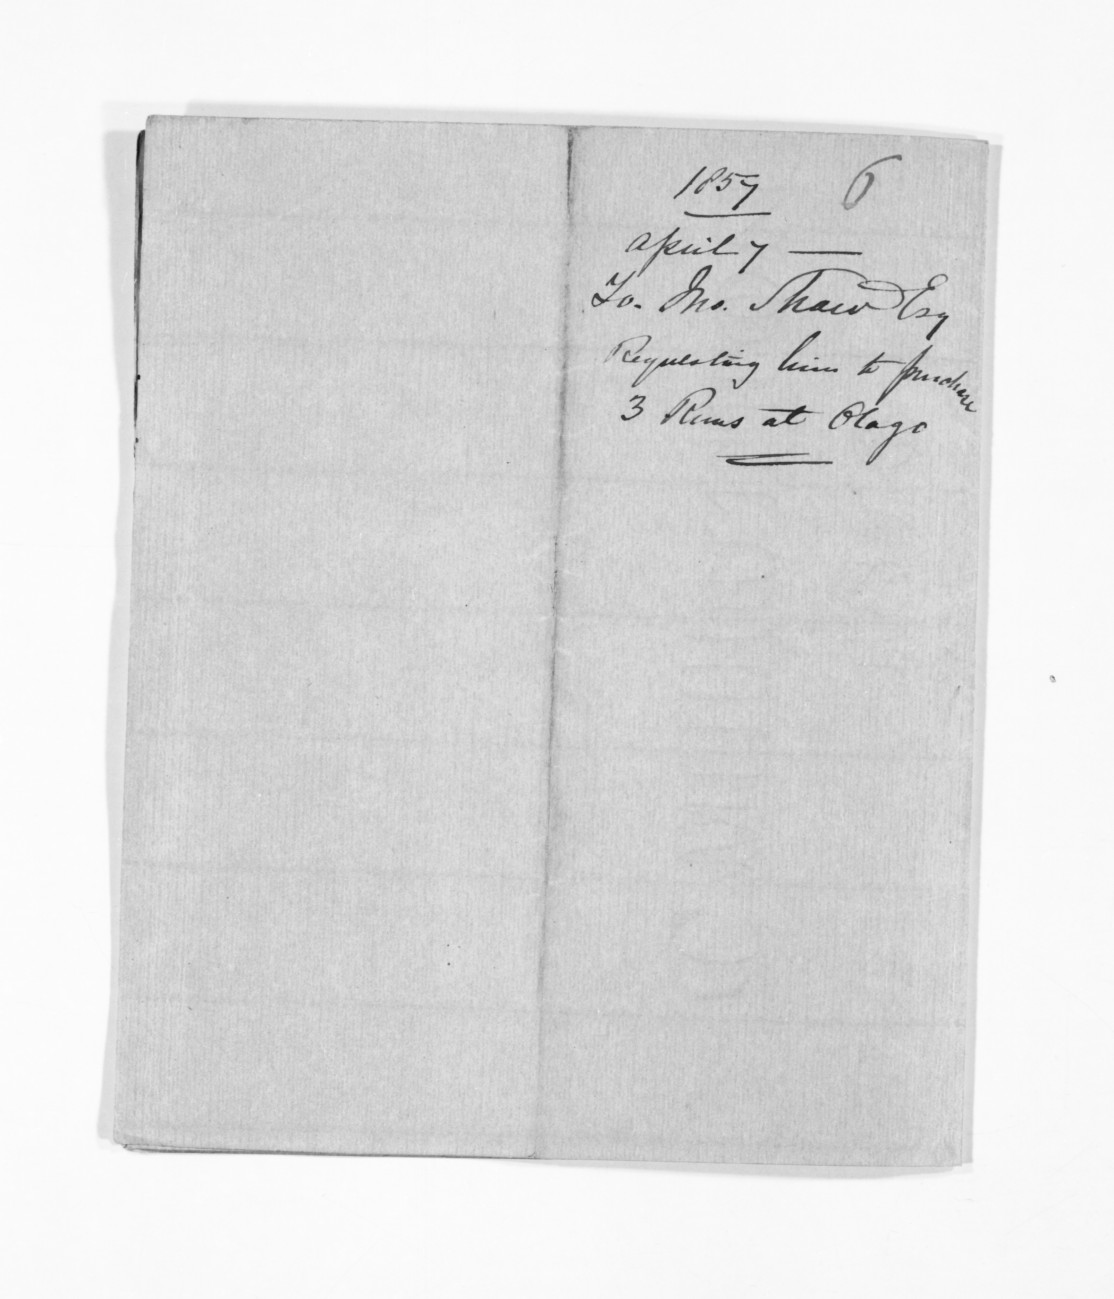 1857 6
April 7 —
To. Jno. Shaw Esq
Requesting him to purchase
3 Runs at Otago